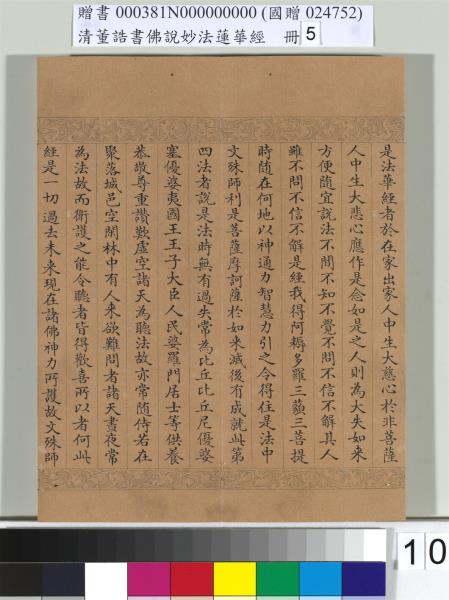 贈書 000381N000000000 (國贈 024752)
清董誥書佛說妙法蓮華經 冊 5
是法華經者於在家出家人中生大慈心於非菩薩
人中生大悲心應作是念如是之人則為大失如來
方便隨宜說法不聞不知不覺不問不信不解其人
雖不問不信不解是經我得阿耨多羅三藐三菩提
時隨在何地以神通力智慧力引之令得住是法中
文殊師利是菩薩摩訶薩於如來滅後有成就此第
四法者說是法時無有過失常為比丘比丘尼優婆
塞優婆夷國王王子大臣人民婆羅門居士等供養
恭敬尊重讚歎虛空諸天為聽法故亦常隨侍若在
聚落城邑空閑林中有人來欲難問者諸天晝夜常
為法故而衛護之能令聽者皆得歡喜所以者何此
經是一切過去未來現在諸佛神力所護故文殊師
10